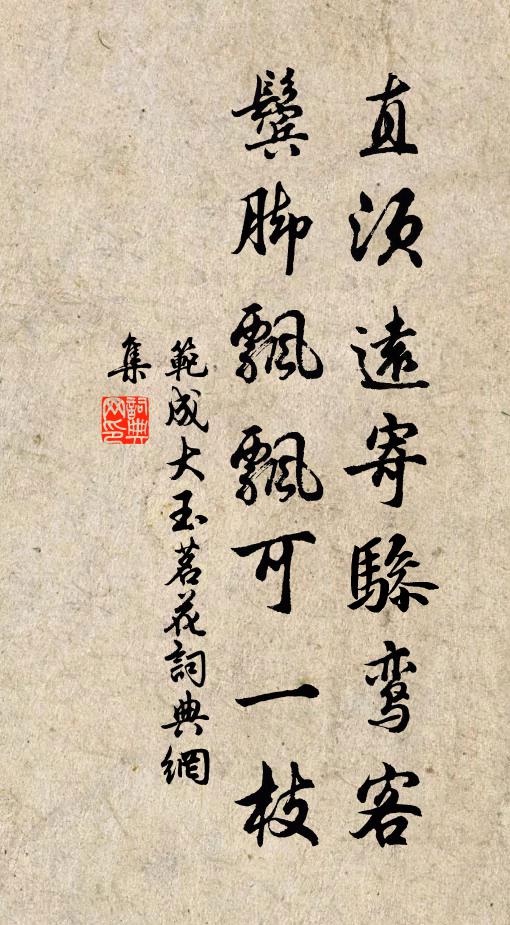 直须遠寄驂鸾客
鬓脚飄飄可一枝
範成大玉茗花詞典網
集
詞典网印